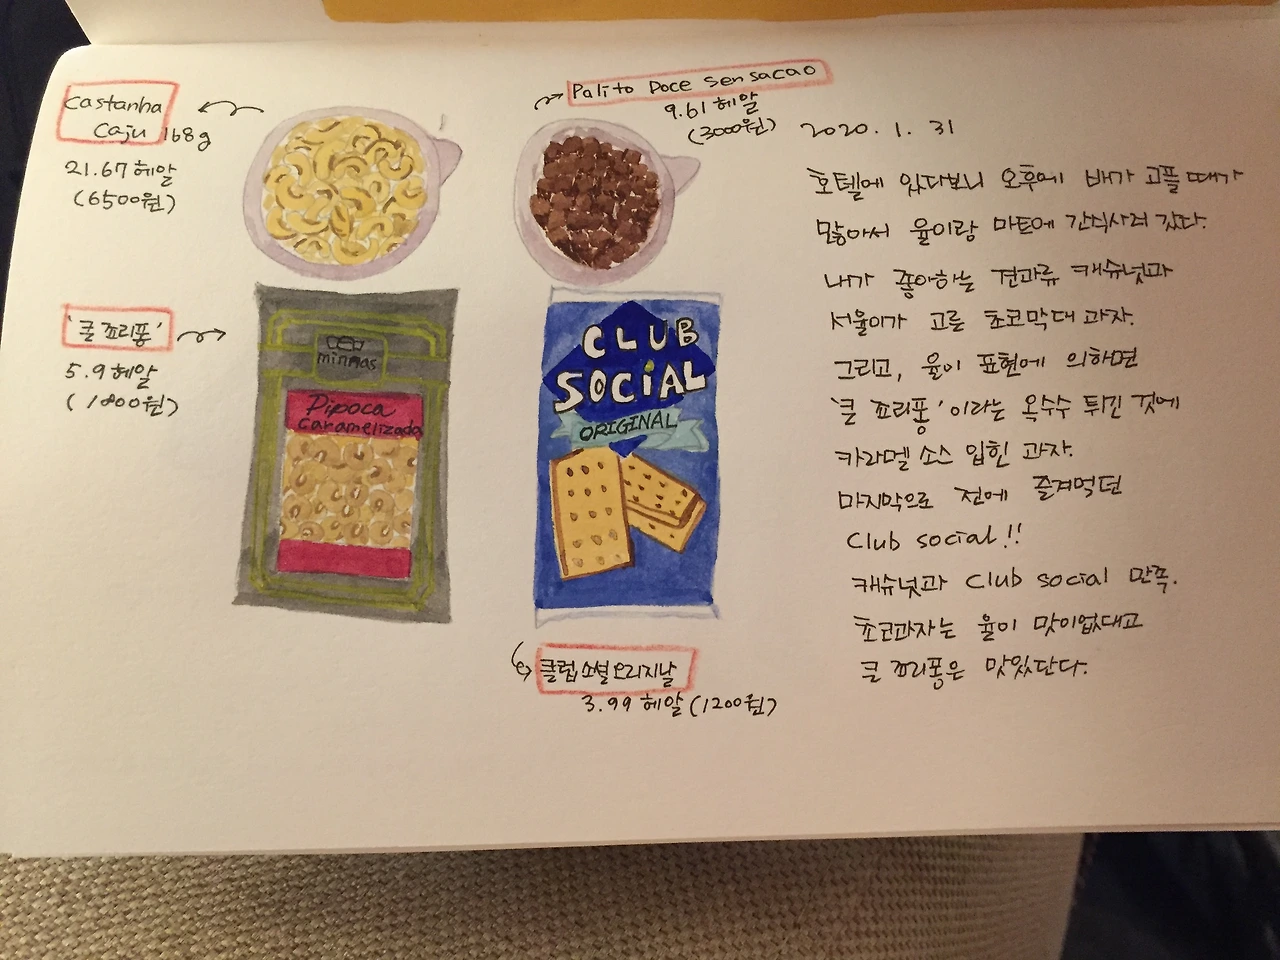 Castanha
Caju 168g
21.67 헤알
(6500원)
Palito Doce Sensacao
9.61 헤알
(3000원)
'큰 죠리퐁'
5.9 헤알
(1800원)
minmas
Pipoca
Caramelizada
CLUB
SOCIAL
ORIGINAL
클럽 소셜 오리지날
3.99 헤알 (1200원)
2020. 1. 31
호텔에 있다보니 오후에 배가 고플 때가
많아서 율이랑 마트에 간식사러 갔다.
내가 좋아하는 견과류 캐슈넛과
서율이가 고른 초코막대 과자.
그리고, 율이 표현에 의하면
'큰 죠리퐁'이라는 옥수수 튀긴 것에
카라멜 소스 입힌 과자.
마지막으로 전에 즐겨먹던
Club social!!
캐슈넛과 Club social 만족.
초코과자는 율이 맛이없대고
큰 죠리퐁은 맛있단다.